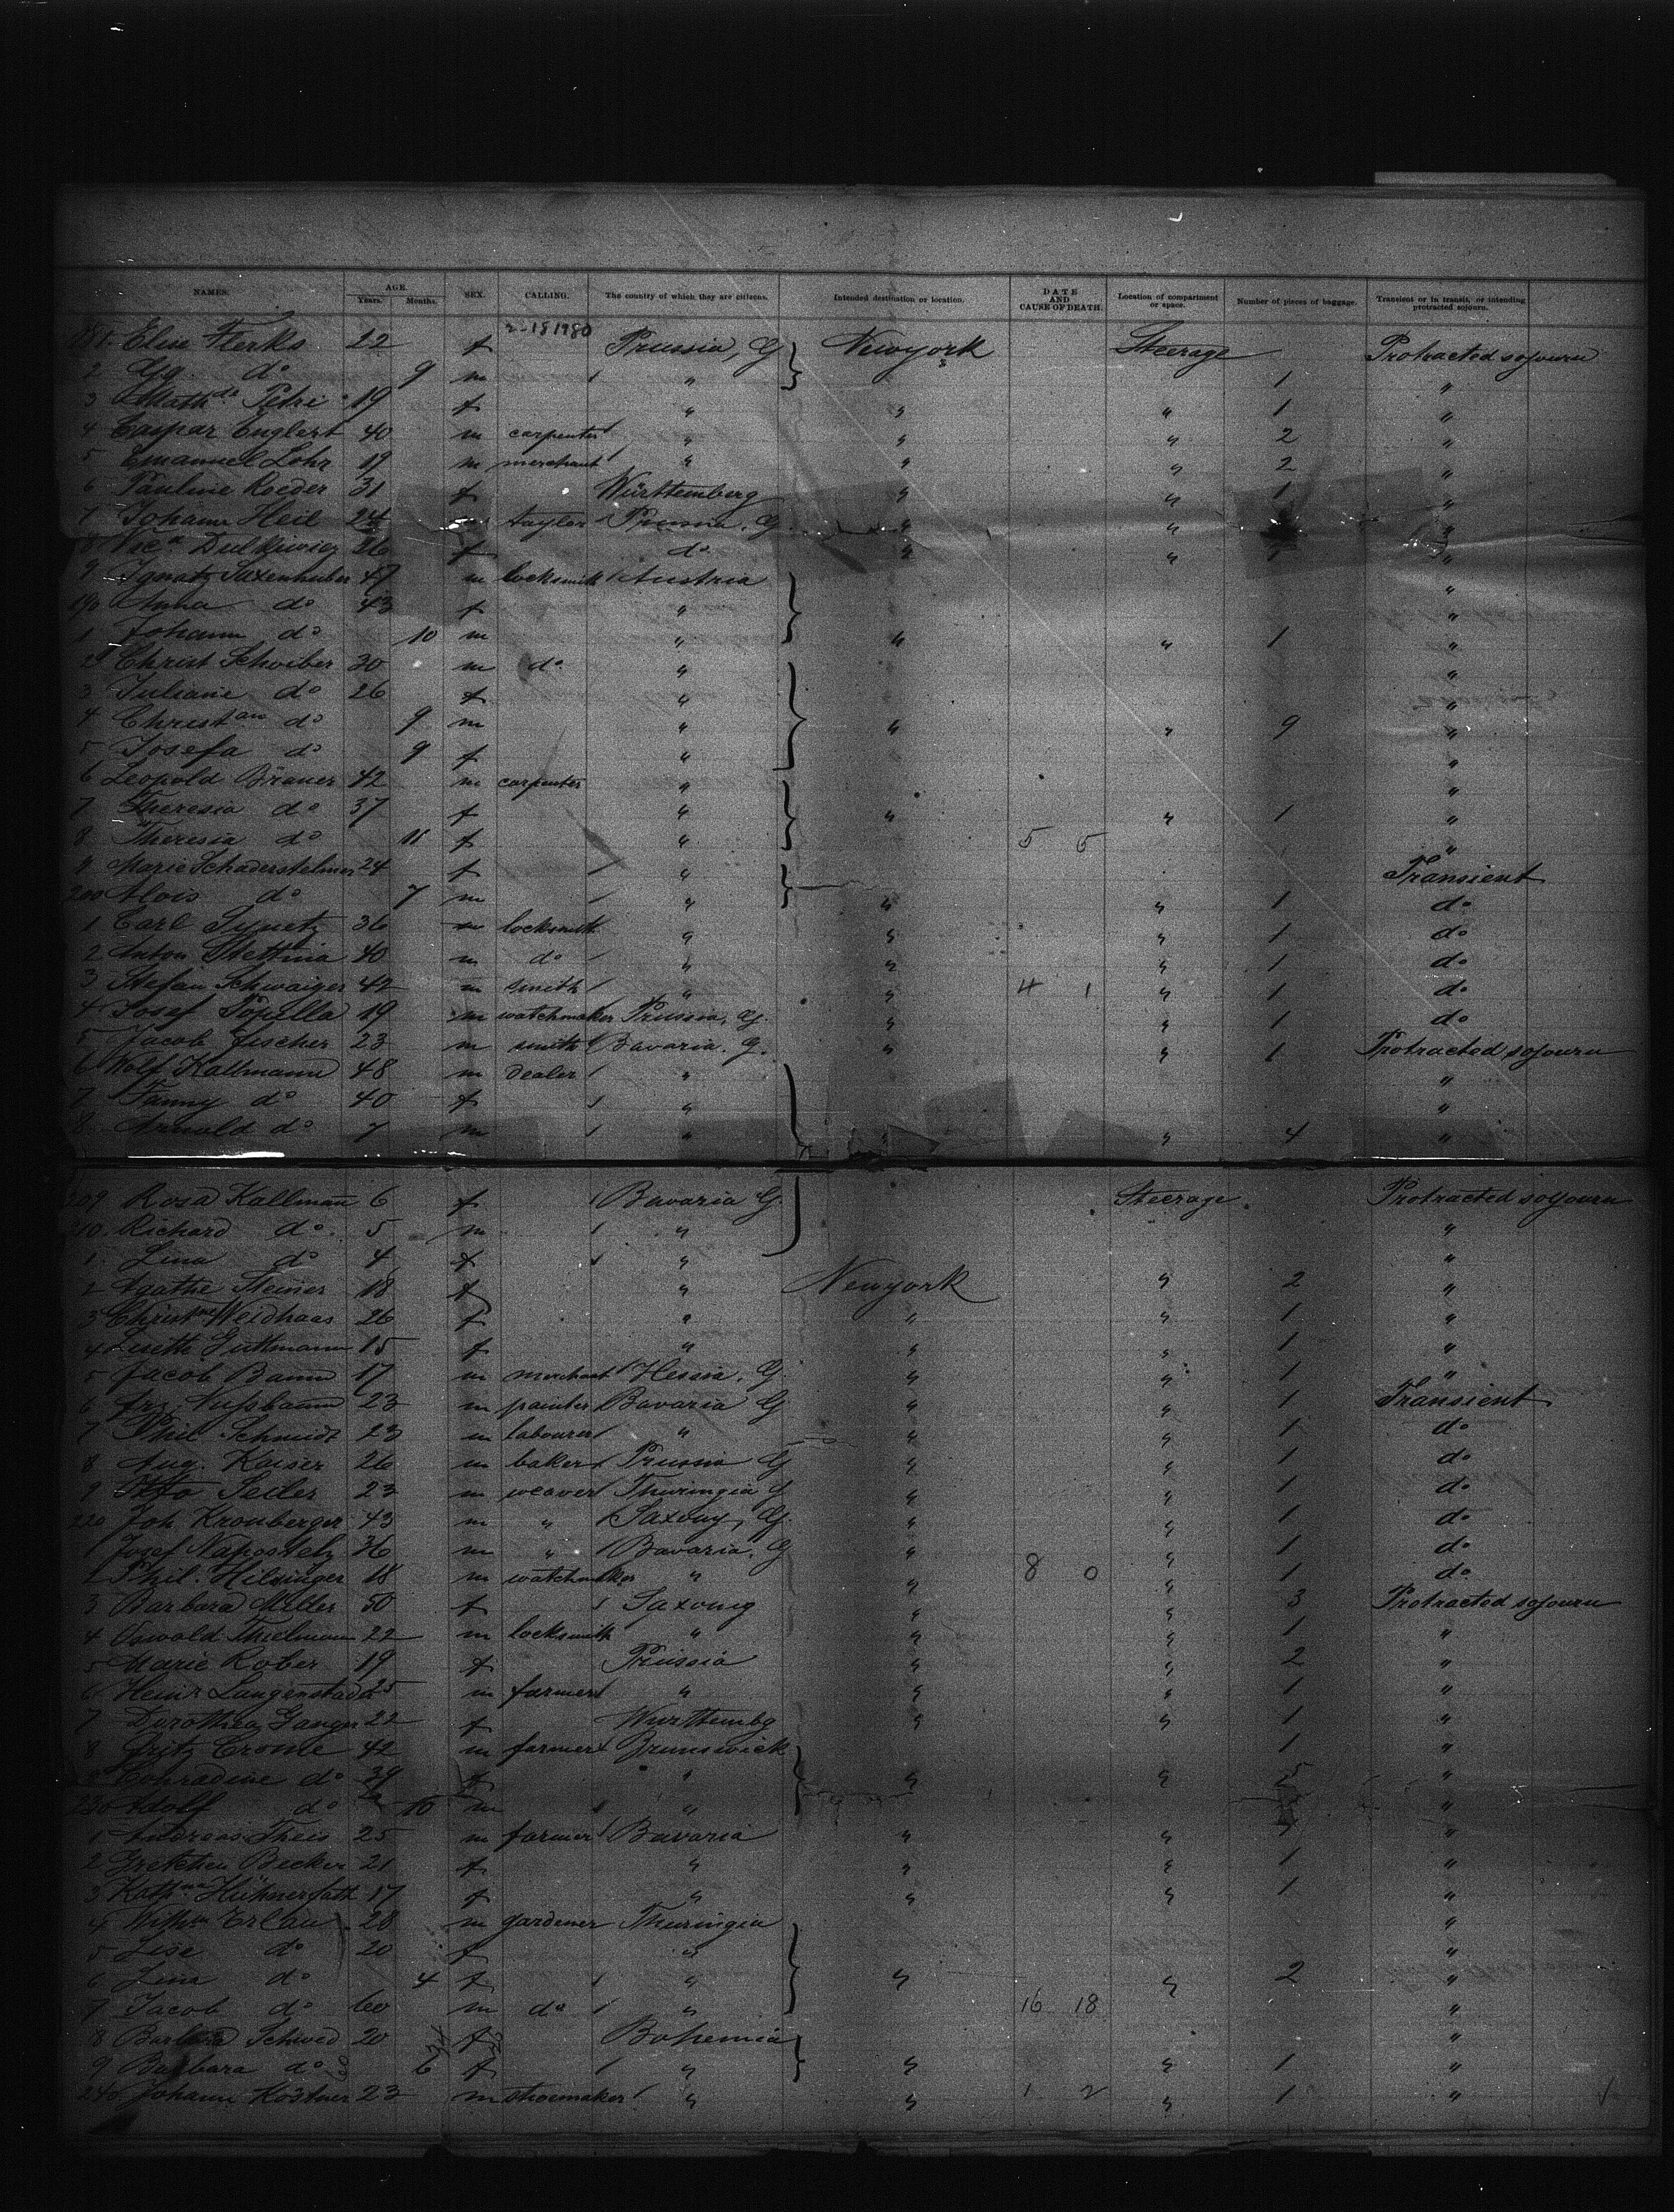 NAMES. AGE. Years. Months. SEX. CALLING. The country of which they are citizens. Intended destination or location. DATE AND CAUSE OF DEATH. Location of compartment or space. Number of pieces of baggage. Transient or in transit, or intending protracted sojourn.
181. Elise Flerks 22 f Prussia, G Newyork Steerage Protracted sojourn
2 do 9 m " 1 "
3 Petri 19 f " " " 1 "
4 Caspar Englert 40 m carpenter " " " 2 "
5 Emanuel Lohr 19 m merchant " " " 2 "
6 Pauline Roeder 31 f Württemberg " " 1 "
7 Johann Heil 24 m taylor Prussia. G " " "
8 26 f do " " "
9 Ignatz Saxenhuber 47 m locksmith Austria "
190 Anna do 43 f " "
1 Johann do 10 m " " " 1 "
2 Christ Schwiber 30 m do "  "
3 Juliane do 26 f " "
4 Christan do 9 m " " " 9 "
5 Josefa do 9 f " "
6 Leopold Brauer 42 m carpenter " "
7 Theresia do 37 f " " " 1 "
8 Theresia do 11 f " 5 5 "
9 Marie 24 f " Transient
200 Alois do 7 m " " " 1 do
1 Carl 36 m locksmith " " " 1 do
2 Anton Stettina 40 m do " " " 1 do
3 Stefan Schwaiger 42 m smith " " 4 1 " 1 do
4 Josef Popella 19 m watchmaker Prussia, G. " " 1 do
5 Jacob Fischer 23 m smith Bavaria. G. " " 1 Protracted sojourn
6 Wolf Kallmann 48 m dealer " "
7 Fanny do 40 f " "
8 Arnold do 7 m " " " 4 "
209 Rosa Kallmann 6 f Bavaria G. Steerage Protracted sojourn
210. Richard do 5 m " "
1. Lina do 4 f " "
2 Agathe Steiner 18 f " Newyork " 2 "
3 Christne Weidhaas 26 f " " " 1 "
4 Lisette Guttmann 15 f " " " 1 "
5 Jacob Baum 17 m merchant Hessia, G. " " 1 "
6 Frz. Nußbaum 23 m painter Bavaria G " " 1 Transient
7 Phil. Schmidt 23 m labourer " " " 1 do
8 Aug. Kaiser 26 m baker Prussia G " " 1 do
9 Otto Seiler 23 m weaver Thuringia G " " 1 do
220 Joh Kronberger 43 m " Saxony, G. " " 1 do
1 Josef 36 m " Bavaria. G " " 1 do
2 Phil: Hilsinger 18 m watchmaker " " 8 0 " 1 do
3 Barbara Miller 50 f Saxony " " 3 Protracted sojourn
4 Oswald Thielmann 22 m locksmith " " " 1 "
5 Marie Rober 19 f Prussia " " 2 "
6 Heinr Langenstadt 25 m farmer " " " 1 "
7 Dorothea Ganger 22 f Württembg " " 1 "
8 Fritz Crome 42 m farmer Brunswick 1 "
9 Conradine do 39 f " " " "
230 Adolf do 10 m " "
1 Andreas Theis 25 m farmer Bavaria " " "
2 Gretchen Becker 21 f " " " 1 "
3 Kathna Hühnerfath 17 f " " " 1 "
4 Wilhm Erlau 28 m gardener Thuringia "
5 Lise do 20 f " "
6 Lina do 4 f " " " 2 "
7 Jacob do 60 m do " 16 18 "
8 Barbara Schwed 20 f Bohemia "
9 Barbara do 6 f " " " 1 "
240 Johann Köstner 23 m shoemaker " " 1 2 " 1 "